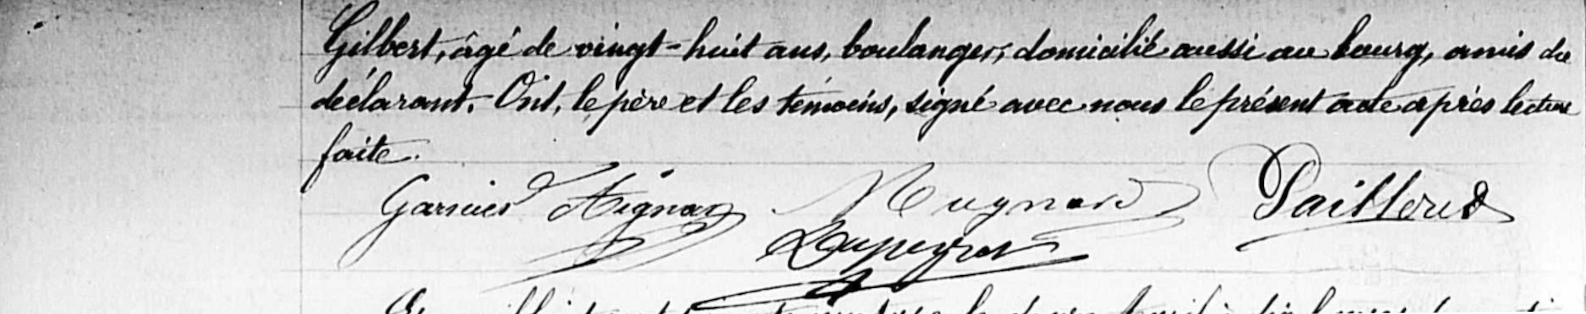 Gilbert, âgé de vingt-huit ans, boulanger, domicilié aussi au bourg, amis du
déclarant. Ont, le père et les témoins, signé avec nous le présent acte après lecture
faite.
Garnier Aignan
Dupeyrat